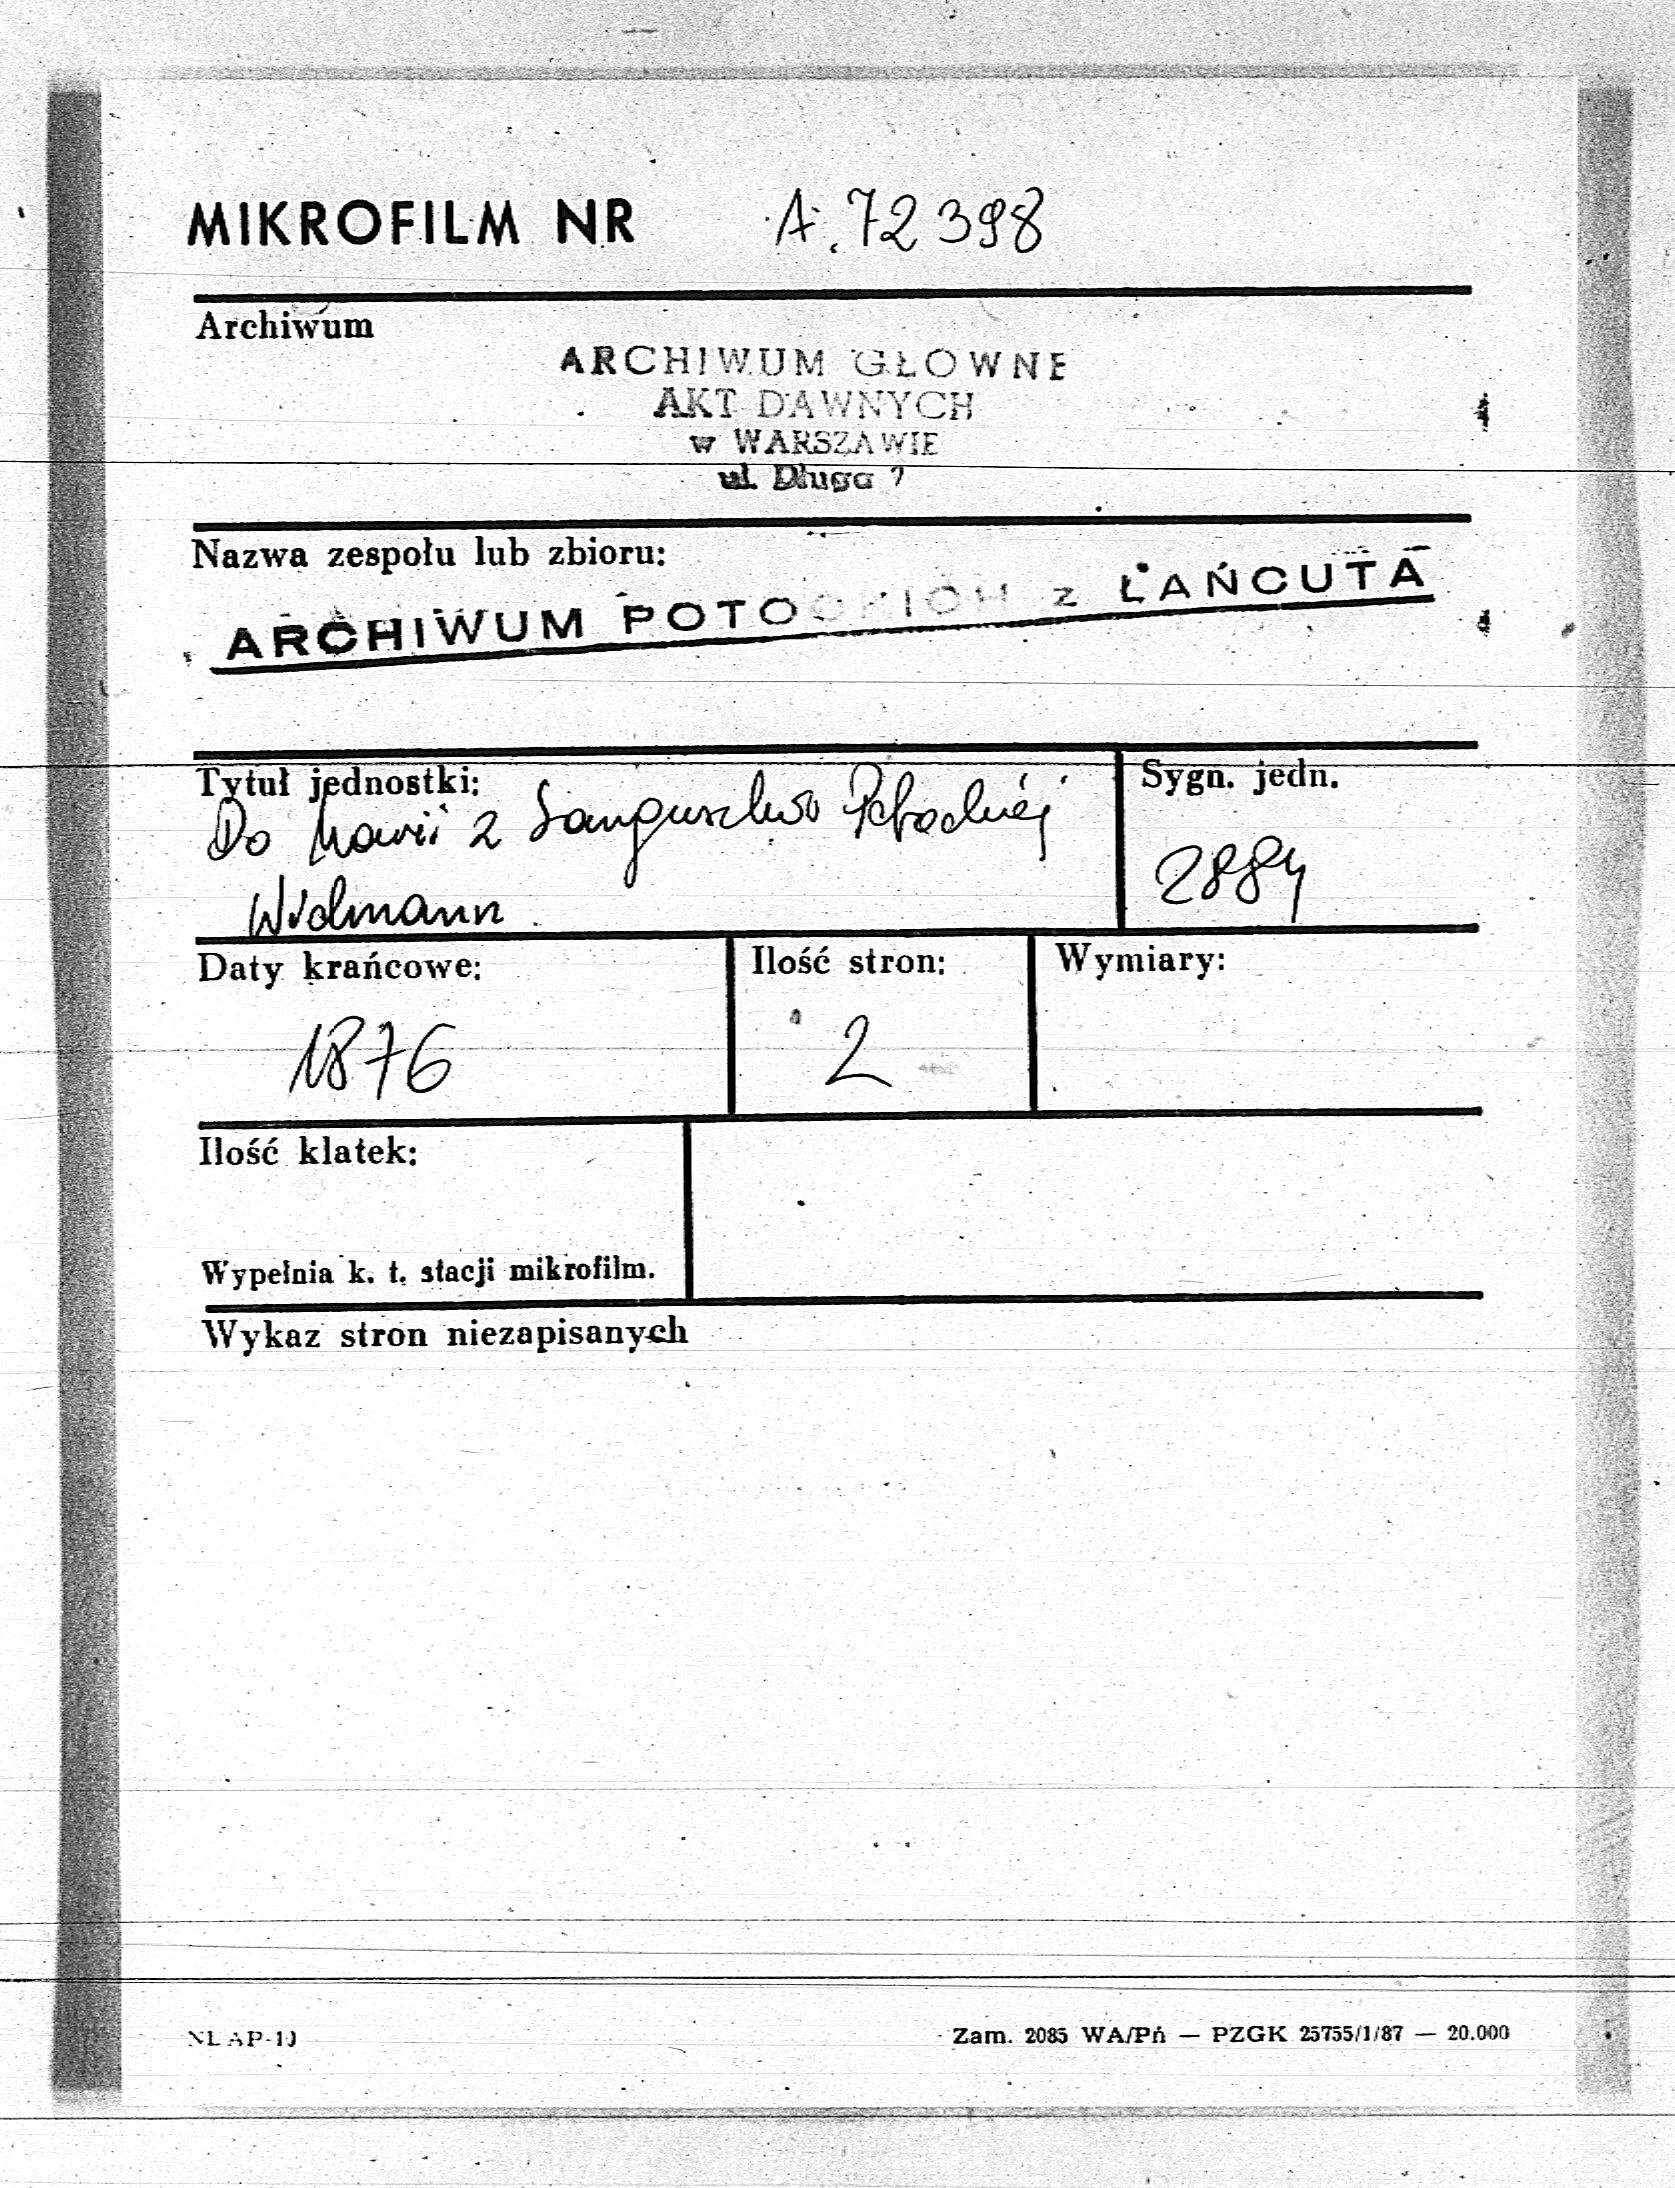 MIKROFILM NR A. 72398
Archiwum
ARCHIWUM GŁOWNE
AKT DAWNYCH
w WARSZAWIE
ul. Długa 7
Nazwa zespołu lub zbioru:
ARCHIWUM POTOCKICH z ŁAŃCUTA
Tytuł jednostki: Sygn. jedn.
Do Marii z Sanguszków Potockiej
Widmann
2884
Daty krańcowe: Ilość stron: Wymiary:
1876 2
Ilość klatek:
Wypełnia k. t. stacji mikrofilm.
Wykaz stron niezapisanych
Zam. 2085 WA/Pń — PZGK 25755/1/87 — 20.000